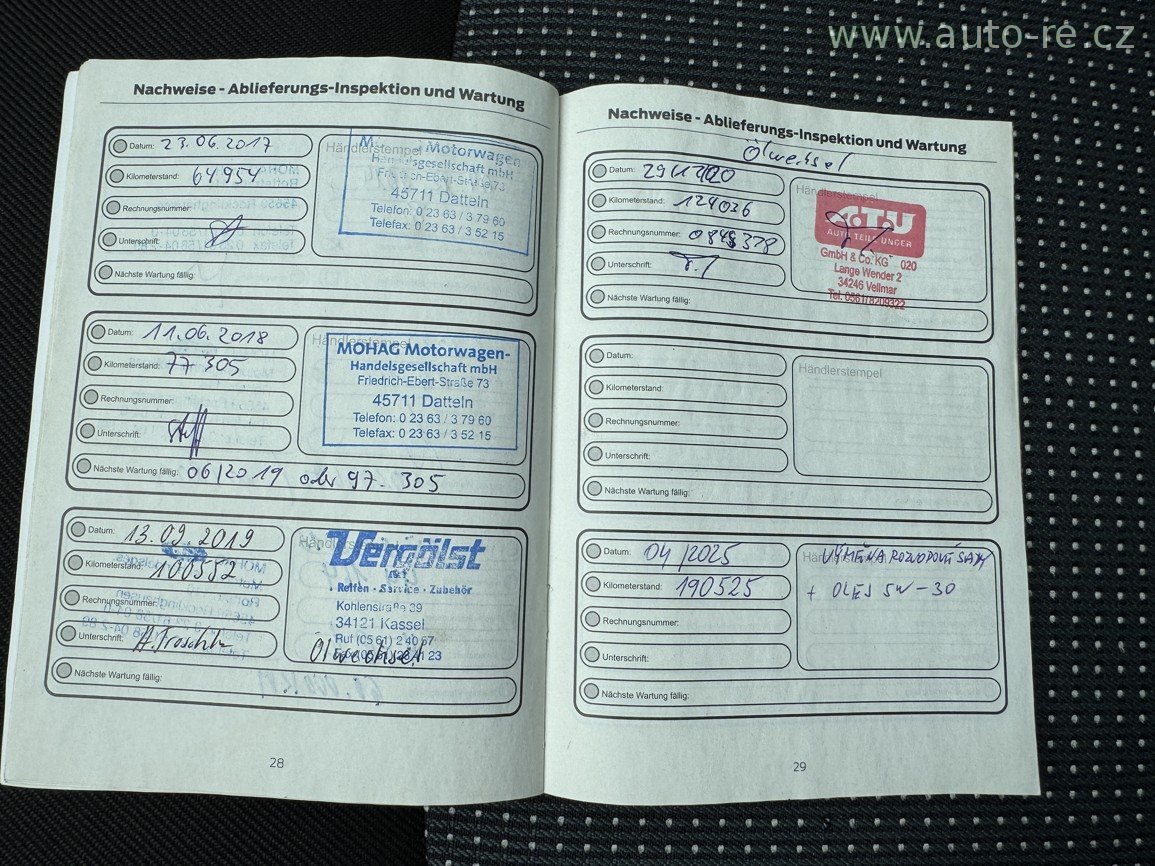 www.auto-re.cz
Nachweise - Ablieferungs-Inspektion und Wartung
Datum: 23.06.2017
Kilometerstand: 64954
Rechnungsnummer:
Unterschrift:
Nächste Wartung fällig:
Händlerstempel
Motorwagen
Handelsgesellschaft mbH
Friedrich-Ebert-Straße 73
45711 Datteln
Telefon: 0 23 63 / 3 79 60
Telefax: 0 23 63 / 3 52 15
Datum: 11.06.2018
Kilometerstand: 77 305
Rechnungsnummer:
Unterschrift:
Nächste Wartung fällig: 06/2019 oder 97. 305
Händlerstempel
MOHAG Motorwagen-
Handelsgesellschaft mbH
Friedrich-Ebert-Straße 73
45711 Datteln
Telefon: 0 23 63 / 3 79 60
Telefax: 0 23 63 / 3 52 15
Datum: 13.09.2019
Kilometerstand: 100552
Rechnungsnummer:
Unterschrift:
Nächste Wartung fällig:
Vergölst
Reifen · Service · Zubehör
Kohlenstraße 39
34121 Kassel
Ruf (05 61) 2 40 67
Ölwechsel
28
Nachweise - Ablieferungs-Inspektion und Wartung
Ölwechsel
Datum:
Kilometerstand: 124036
Rechnungsnummer:
Unterschrift:
Nächste Wartung fällig:
Händlerstempel
A.T.U
AUTO TEILE UNGER
GmbH & Co. KG 020
Lange Wender 2
34246 Vellmar
Tel. 0561/8209322
Datum:
Kilometerstand:
Rechnungsnummer:
Unterschrift:
Nächste Wartung fällig:
Händlerstempel
Datum: 04/2025
Kilometerstand: 190525
Rechnungsnummer:
Unterschrift:
Nächste Wartung fällig:
VÝMĚNA ROZVODOVÉ SADY
+ OLEJ 5W-30
29